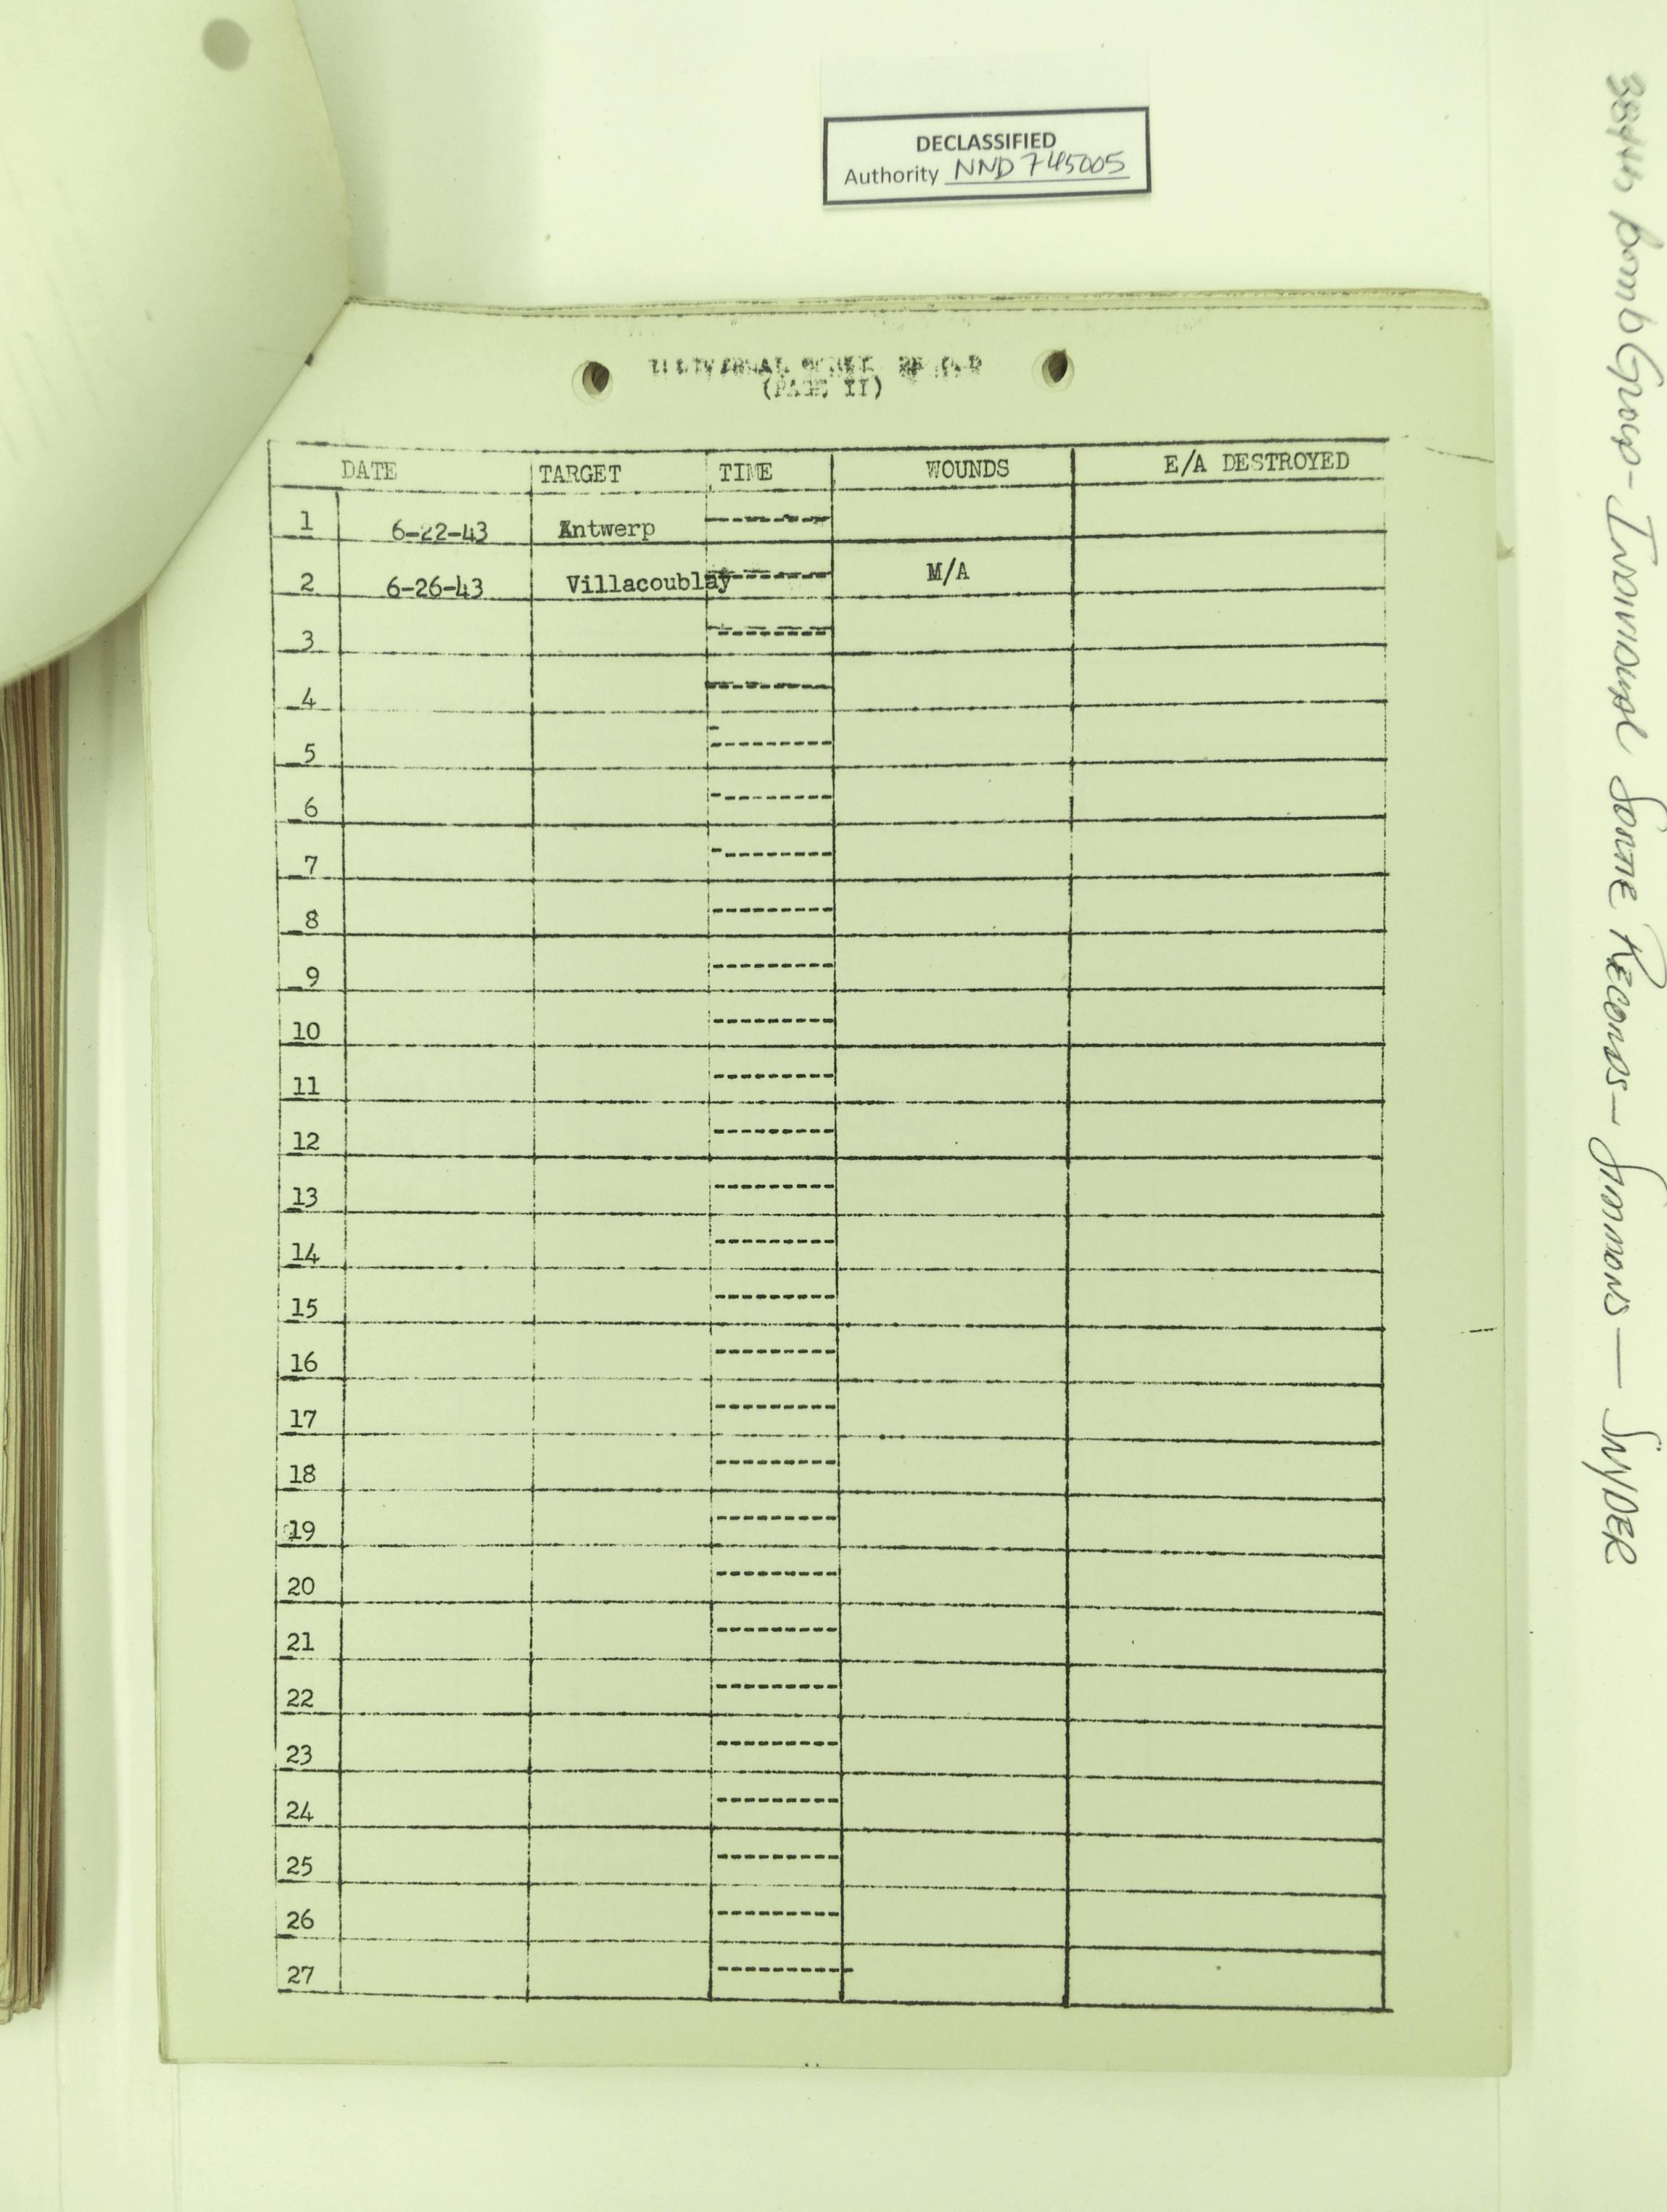 DECLASSIFIED
Authority NND 745005
(PAGE II)
DATE TARGET TIME WOUNDS E/A DESTROYED
1 6-22-43 Antwerp ---------
2 6-26-43 Villacoublay --------- M/A
3 ---------
4 ---------
5 ---------
6 ---------
7 ---------
8 ---------
9 ---------
10 ---------
11 ---------
12 ---------
13 ---------
14 ---------
15 ---------
16 ---------
17 ---------
18 ---------
19 ---------
20 ---------
21 ---------
22 ---------
23 ---------
24 ---------
25 ---------
26 ---------
27 ----------
384th Bomb Group - Individual Sortie Records - Simmons - Snyder